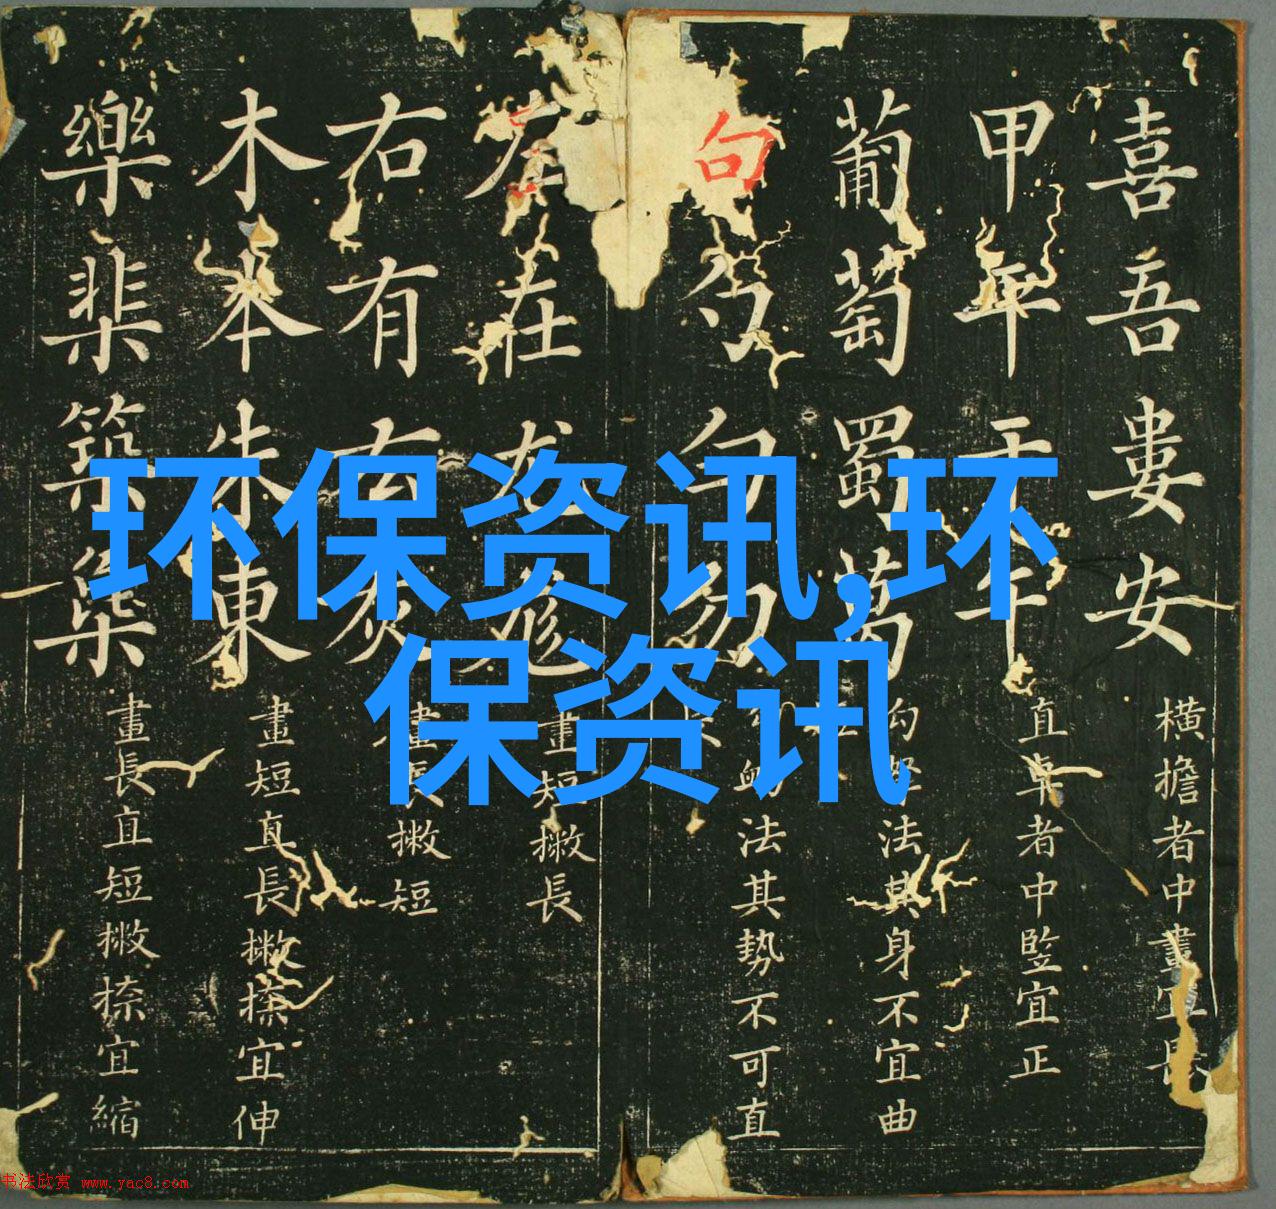 环保资讯,环
保资讯
喜吾婁安
橫擔者中畫宜
甲干
直者中宜正
葡萄蜀葛
法其身不宜曲
句勻勿
法其勢不可直
左在尤
畫短撇長
右有灰
畫長撇短
木本朱東
畫短直長撇捺宜伸
樂棐築
畫長直短撇捺宜縮
书法欣赏 www.yac8.com